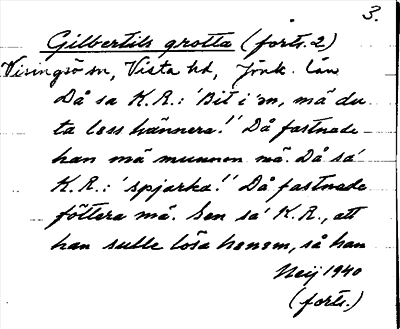 3.
Gilbertils grotta (forts. 2)
Visingsö sn, Vista hd, Jönk. län
Då sa K.R.: 'Bit i 'en, må du
ta loss hännera!' Då fastnade
han mä munnen mä. Då sa'
K.R.: 'spjarka!' Då fastnade
föttera mä. Sen sa' K.R., att
han sulle lösa honom, så han
Neij 1940
(forts.)